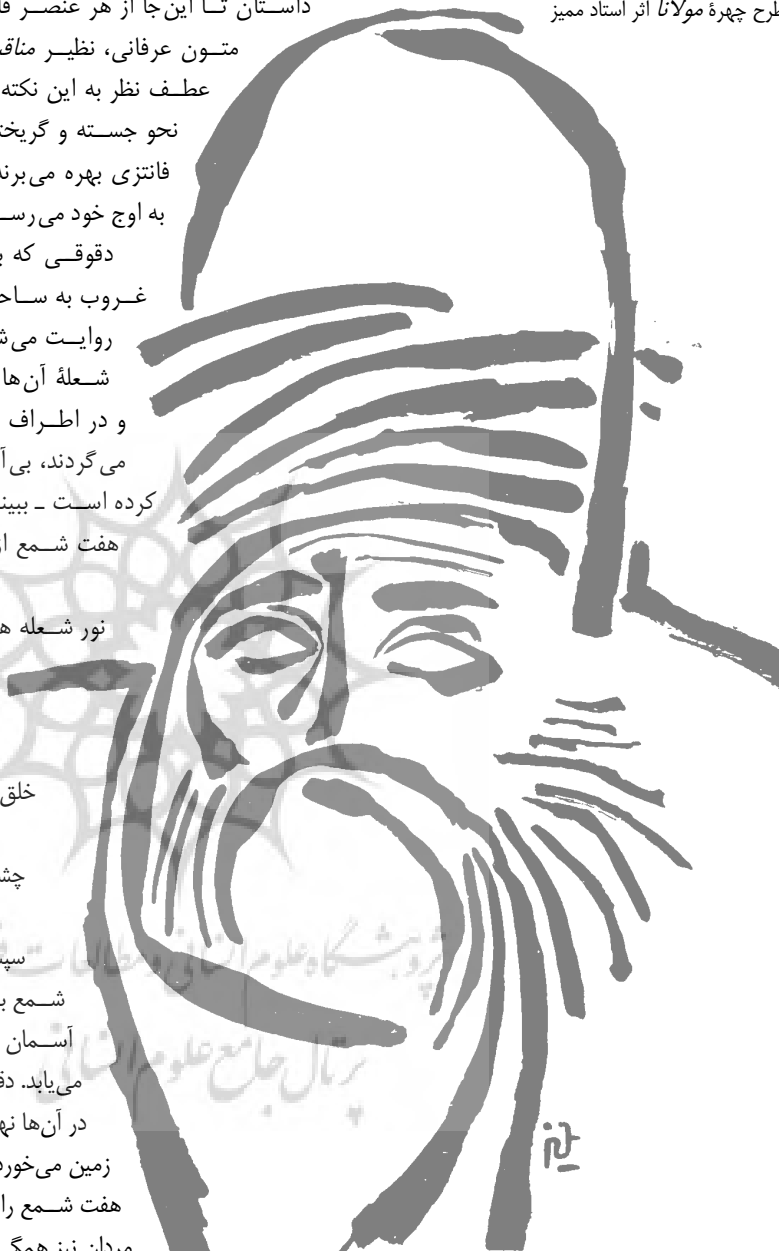 طرح چهرهٔ مولانا اثر استاد ممیز
داستان تا این‌جا از هر عنصر
متون عرفانی، نظیر
عطف نظر به این نکته
نحو جسته و
فانتزی بهره می‌برند
به اوج خود
دقوقی که
غروب به
روایت
شعلهٔ آن‌ها
و در اطراف
می‌گردند،
کرده است ـ
هفت شمع
نور شعله
خلق
شمع
آسمان
می‌یابد.
در آن‌ها
زمین می‌خورد
هفت شمع را
مردان نیز
پژوهشگاه علوم انسانی و مطالعات
پرتال جامع علوم انسانی